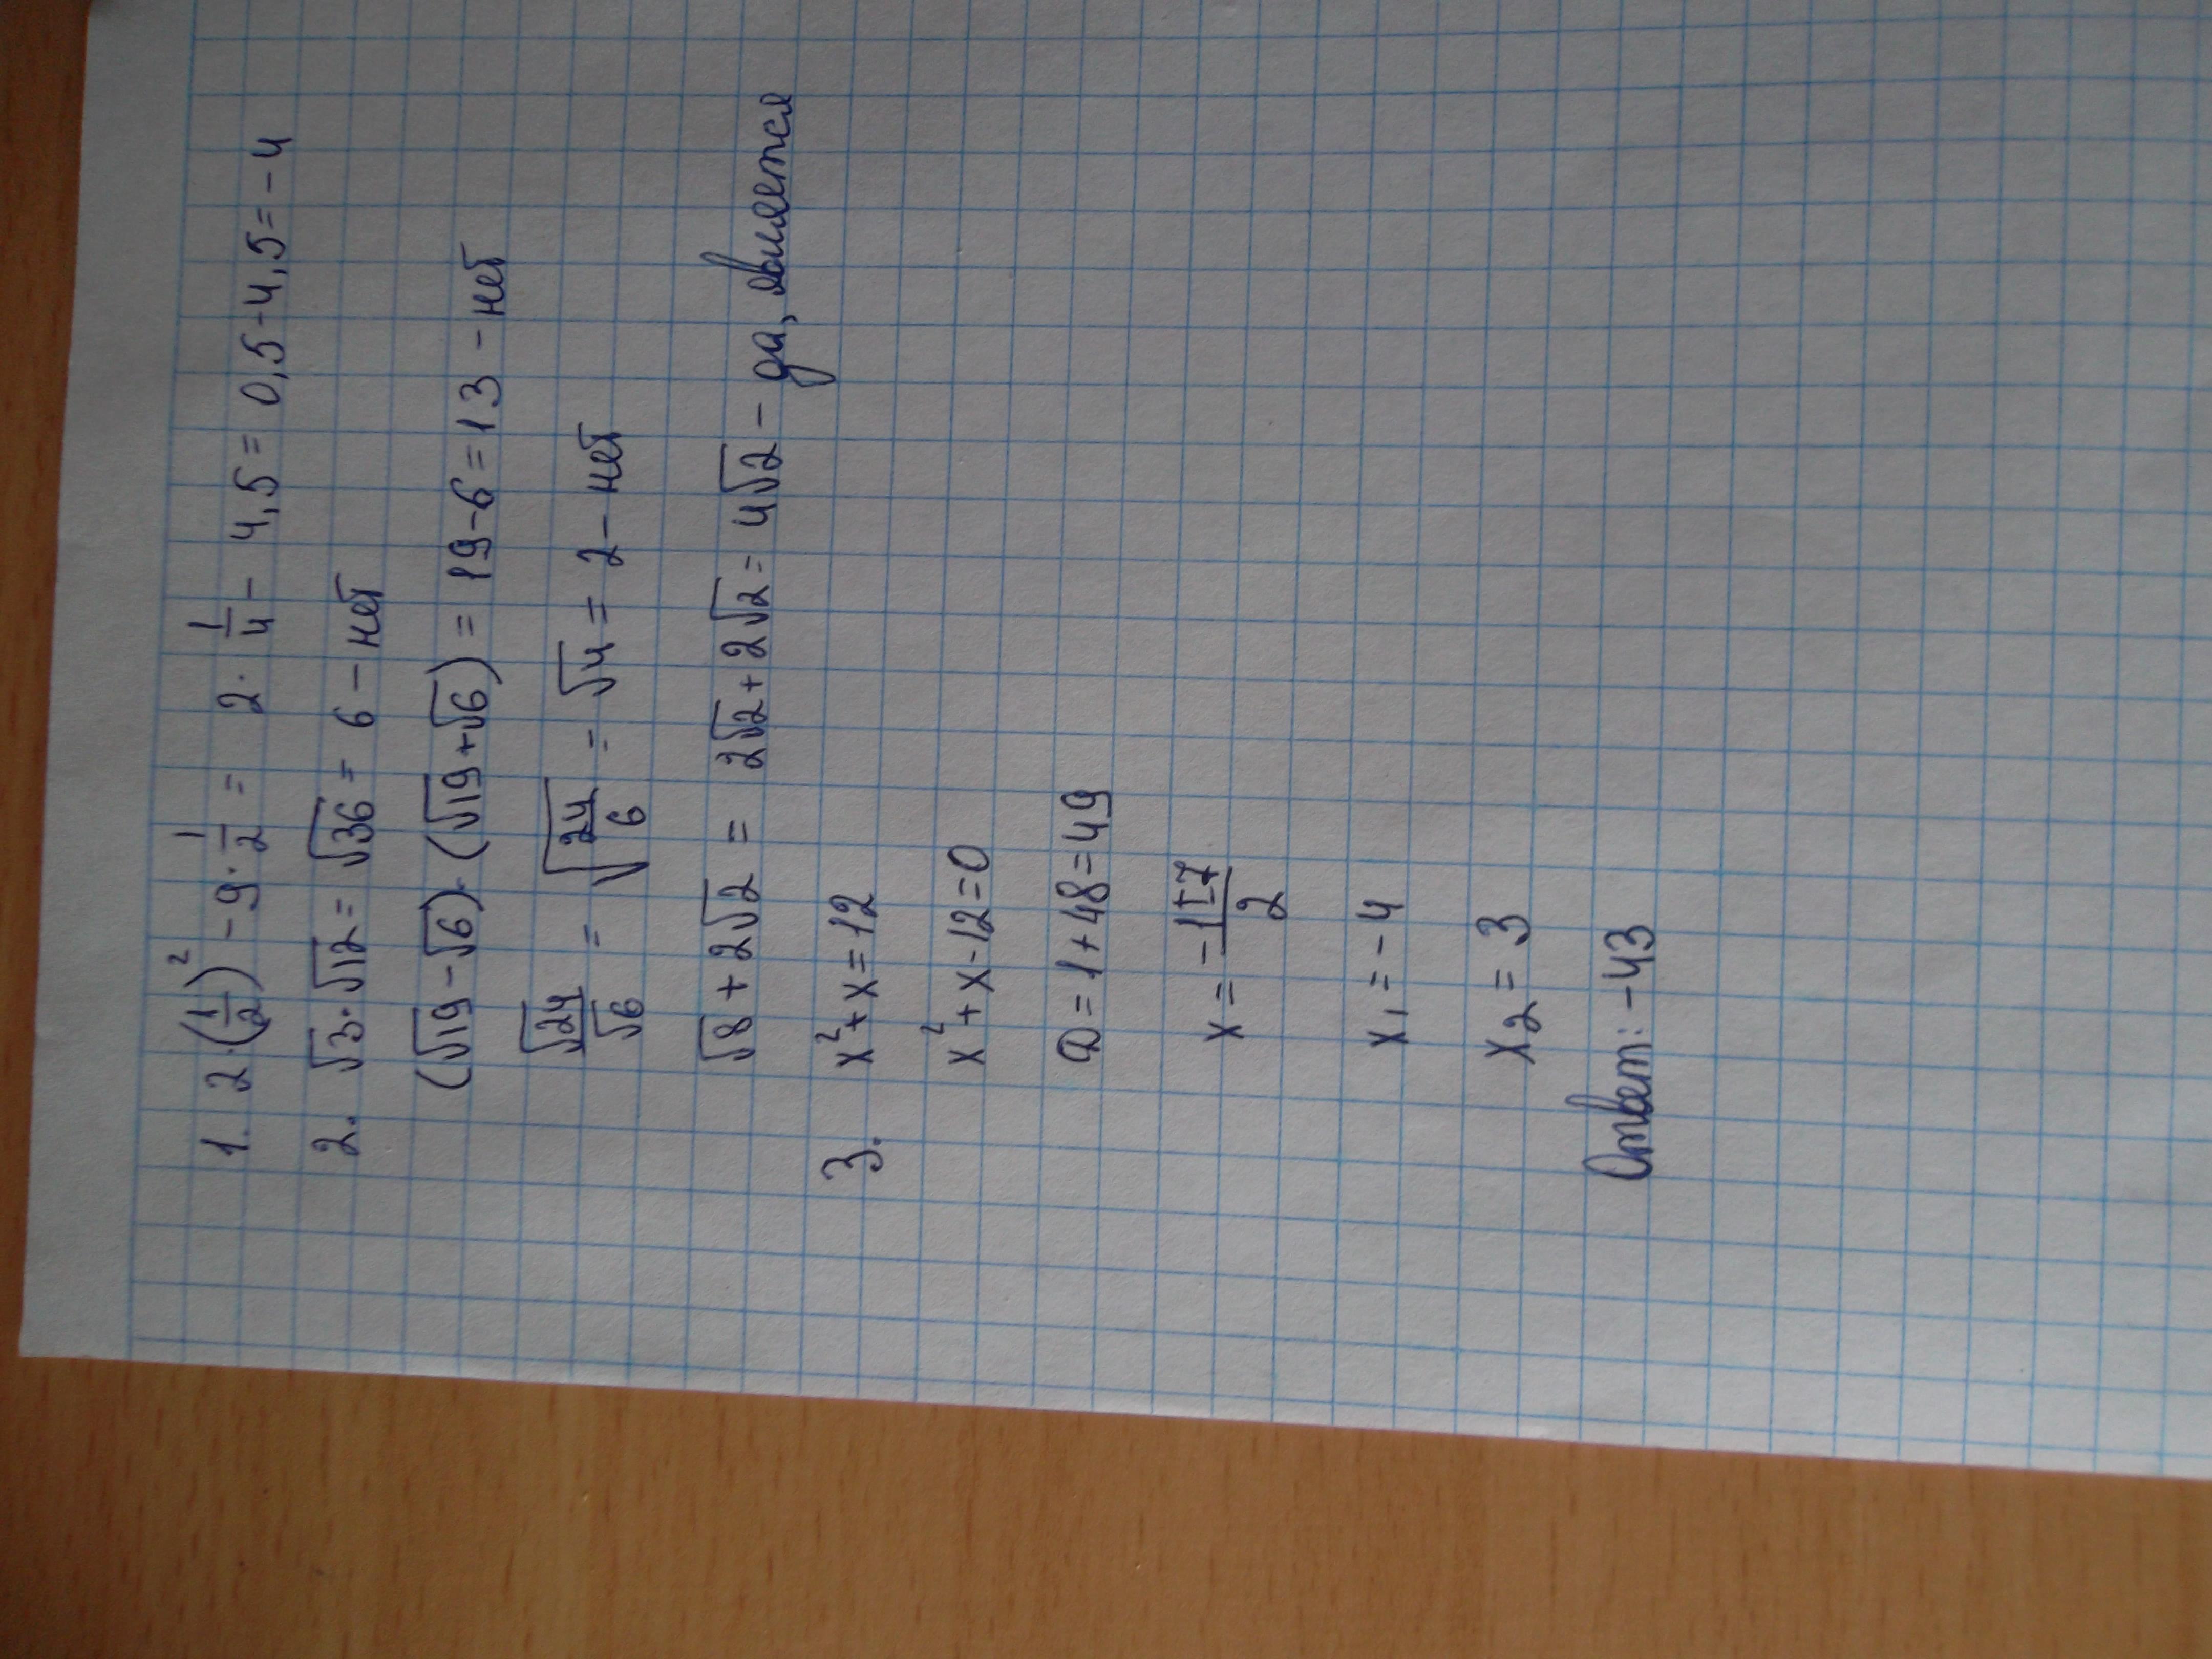 1. 2·(1/2)² - 9·1/2 = 2·1/4 - 4,5 = 0,5-4,5 = -4
2. √3·√12 = √36 = 6 - нет
(√19-√6)·(√19+√6) = 19-6 = 13 - нет
√24/√6 = √(24/6) = √4 = 2 - нет
√8 + 2√2 = 2√2 + 2√2 = 4√2 - да, является
3. x² + x = 12
x² + x - 12 = 0
D = 1 + 48 = 49
x = (-1±7)/2
x₁ = -4
x₂ = 3
Ответ: -43